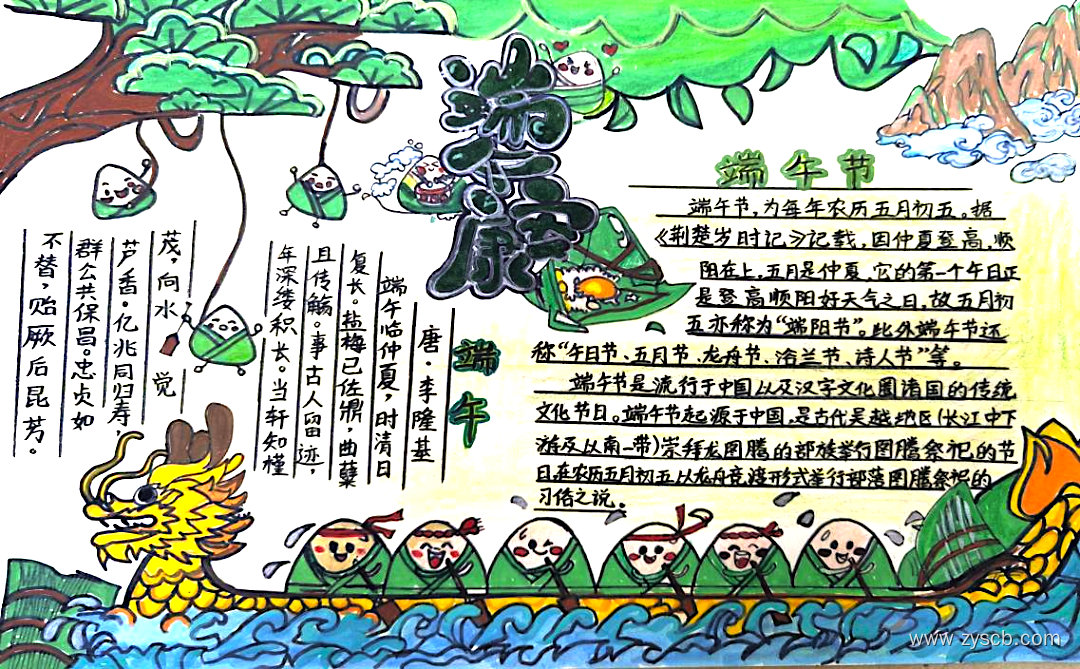 端午安康
端午节
端午节,为每年农历五月初五。据
《荆楚岁时记》记载,因仲夏登高,顺
阳在上,五月是仲夏,它的第一个午日正
是登高顺阳好天气之日,故五月初
五亦称为“端阳节”。此外端午节还
称“午日节、五月节、龙舟节、浴兰节、诗人节”等。
端午节是流行于中国以及汉字文化圈诸国的传统
文化节日。端午节起源于中国,是古代吴越地区(长江中下
游及以南一带)崇拜龙图腾的部族举行图腾祭祀的节
日,在农历五月初五以龙舟竞渡形式举行部落图腾祭祀的
习俗之说。
端午
唐·李隆基
端午临仲夏,时清日
复长。盐梅已佐鼎,曲蘖
且传觞。事古人留迹,
年深缕积长。当轩知槿
茂,向水觉
芦香。亿兆同归寿,
群公共保昌。忠贞如
不替,贻厥后昆芳。
www.zyscb.com